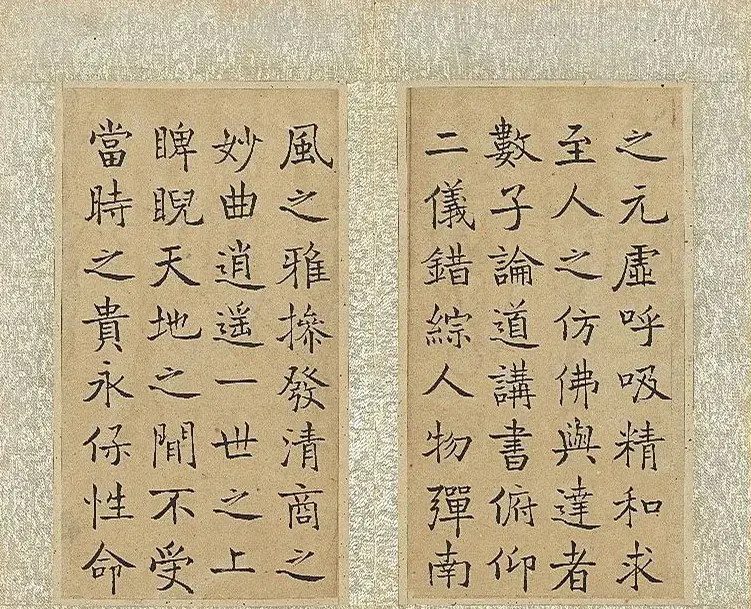 之元虛呼吸精和求
至人之仿佛與達者
數子論道講書俯仰
二儀錯綜人物彈南
風之雅摻發清商之
妙曲逍遥一世之上
睥睨天地之間不受
當時之貴永保性命